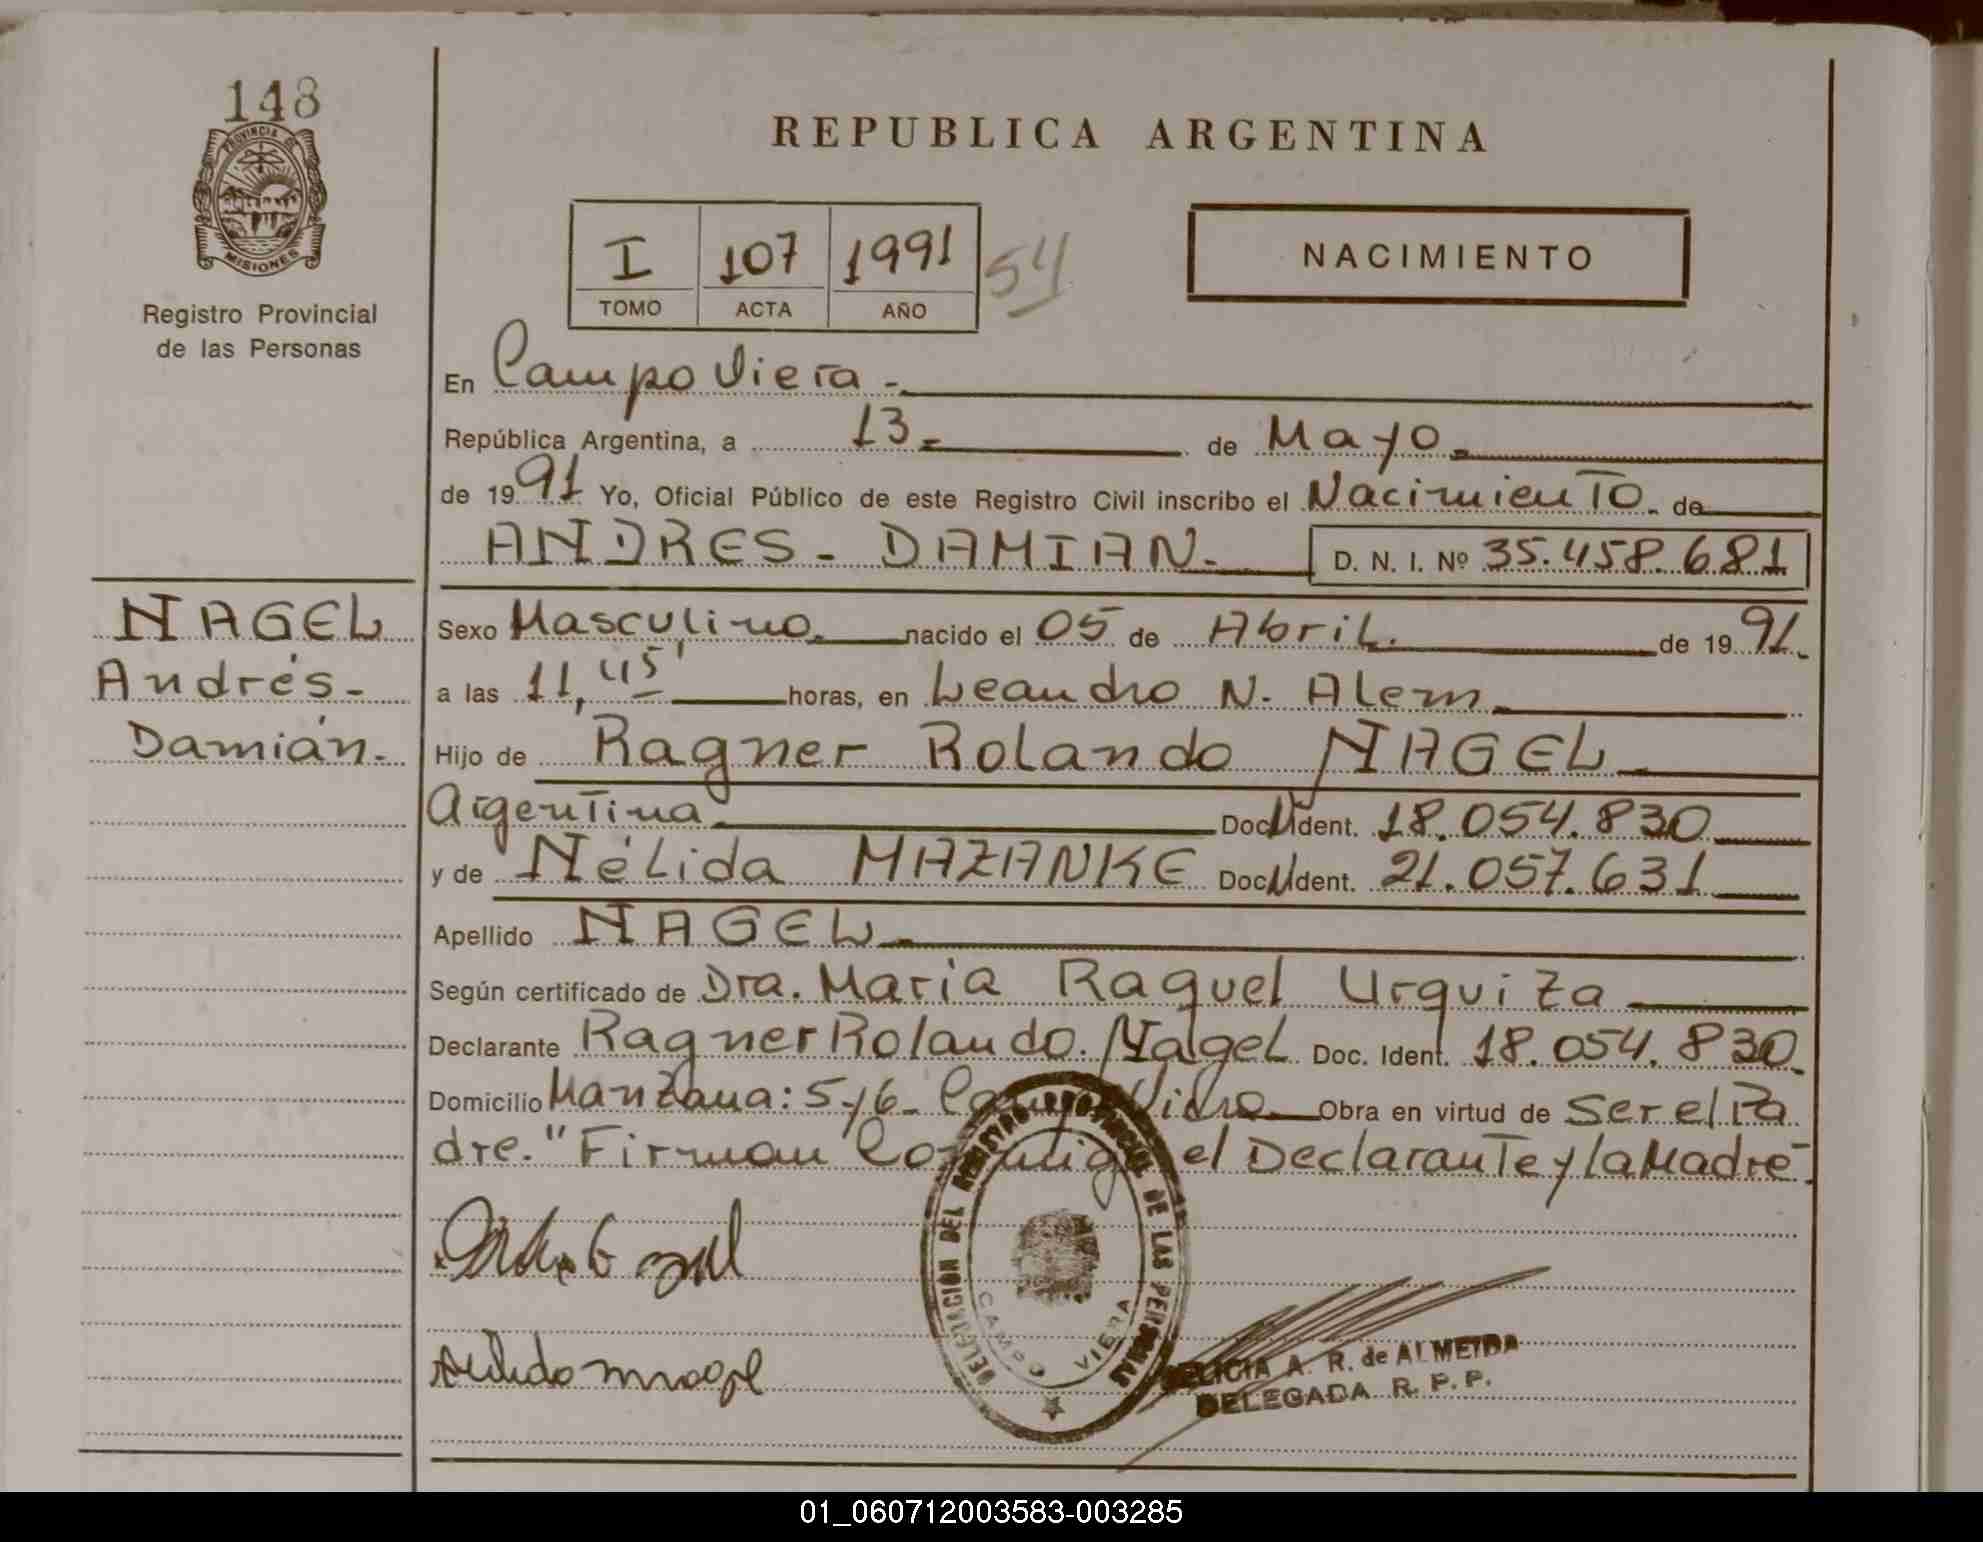 148
PROVINCIA DE
MISIONES
Registro Provincial
de las Personas
REPUBLICA ARGENTINA
I 107 1991 54
TOMO ACTA AÑO
NACIMIENTO
En Campo Viera.-
República Argentina, a 13.- de Mayo.-
de 1991 Yo, Oficial Público de este Registro Civil inscribo el Nacimiento. de
ANDRES - DAMIAN.- D. N. I. Nº 35.458.681
NAGEL
Andrés-
Damián.-
Sexo Masculino. nacido el 05 de Abril. de 1991.
a las 11,45' horas, en Leandro N. Alem
Hijo de Ragner Rolando NAGEL
Argentina Doc. Ident. 18.054.830
y de Nélida MAZANKE Doc. Ident. 21.057.631
Apellido NAGEL.-
Según certificado de Dra. Maria Raquel Urquiza
Declarante Ragner Rolando. Nagel Doc. Ident. 18.054.830
Domicilio Manzana: 5 y 6- Obra en virtud de Ser el Pa
dre." Firman el Declarante y la Madre-
DELEGACION DEL REGISTRO PROVINCIAL DE LAS PERSONAS
CAMPO VIERA
A. R. de ALMEIDA
DELEGADA R. P. P.
01_060712003583-003285